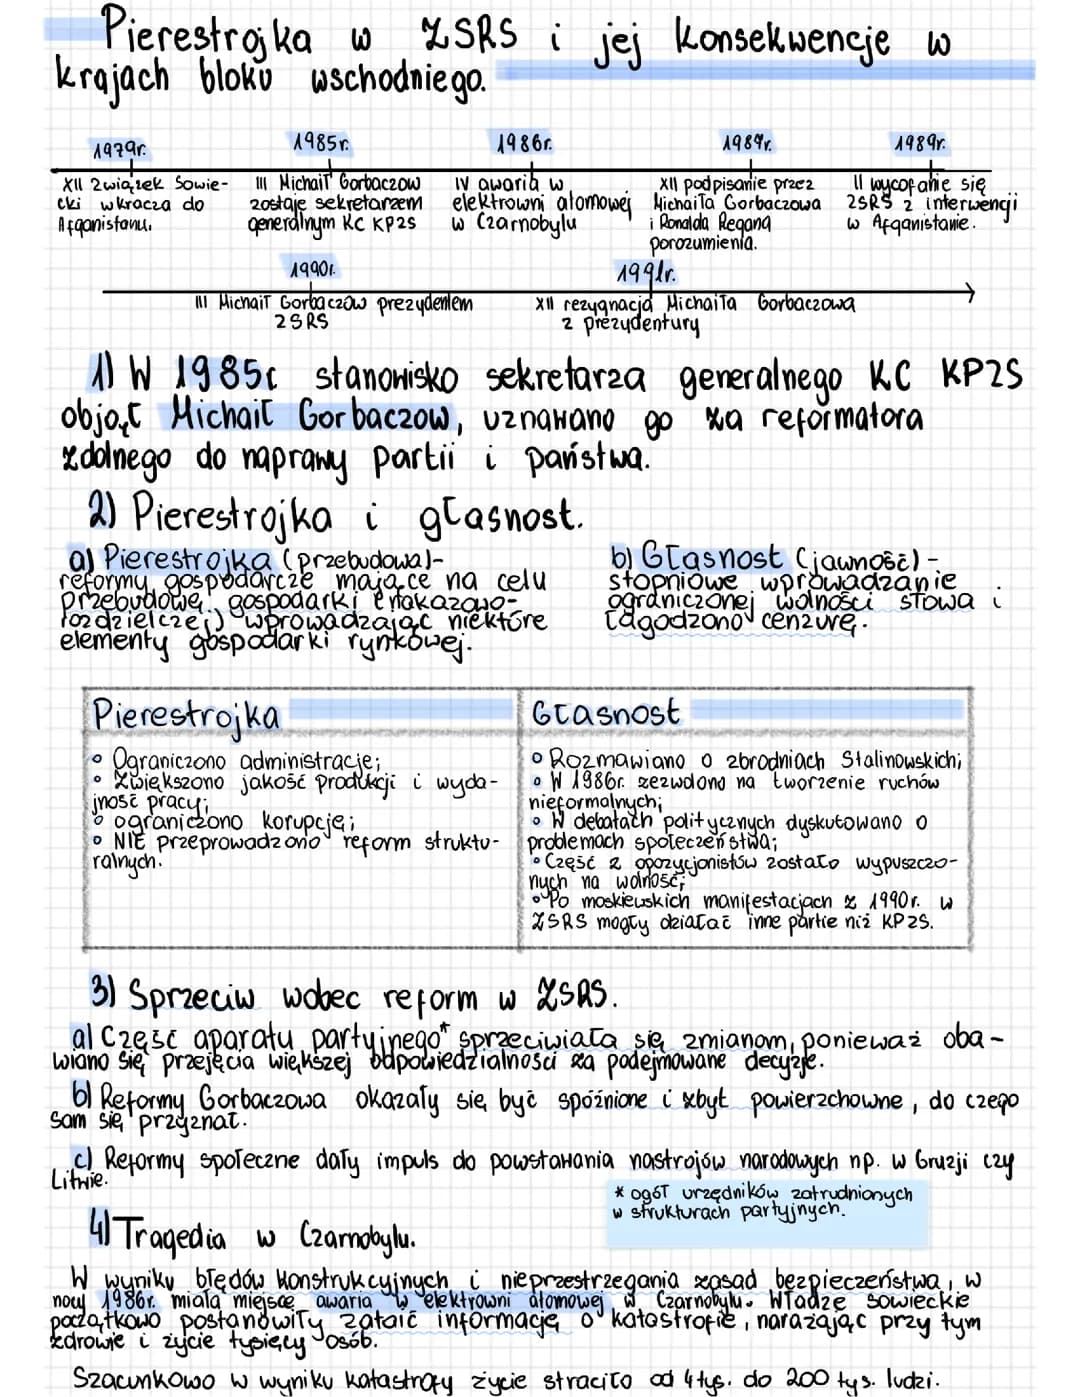 Pierestrojka w ZSRS i jej konsekwencje w
krajach bloku wschodniego.
1979r.
1985r.
1986r.
1987r.
1989r.
XII Związek Sowie-
cki wkracza do
Afganistanu.
III Michaił Gorbaczow
zostaje sekretarzem
generalnym KC KPZS
IV awaria w
elektrowni atomowej
w Czarnobylu
XII podpisanie przez
Michaiła Gorbaczowa
i Ronalda Regana
porozumienia.
II wycofanie się
ZSRS z interwencji
w Afganistanie.
1990r.
1991r.
III Michaił Gorbaczow prezydentem
ZSRS
XII rezygnacja Michaiła Gorbaczowa
z prezydentury
1) W 1985r stanowisko sekretarza generalnego KC KPZS
objął Michaił Gorbaczow, uznawano go za reformatora
zdolnego do naprawy partii i państwa.
2) Pierestrojka i głasnost.
a) Pierestrojka (przebudowa)-
reformy gospodarcze mające na celu
przebudowę gospodarki (nakazowo-
rozdzielczej) wprowadzając niektóre
elementy gospodarki rynkowej.
b) Głasnost (jawność) -
stopniowe wprowadzanie
ograniczonej wolności słowa i
łagodzono cenzurę.
Pierestrojka
• Ograniczono administrację;
• Zwiększono jakość produkcji i wyda-
jność pracy;
• ograniczono korupcję;
• NIE przeprowadzono reform struktu-
ralnych.
Głasnost
• Rozmawiano o zbrodniach Stalinowskich;
• W 1986r. zezwolono na tworzenie ruchów
nieformalnych;
• W debatach politycznych dyskutowano o
problemach społeczeństwa;
• Część z opozycjonistów zostało wypuszczo-
nych na wolność;
• Po moskiewskich manifestacjach z 1990r. w
ZSRS mogły działać inne partie niż KPZS.
3) Sprzeciw wobec reform w ZSRS.
a) Część aparatu partyjnego* sprzeciwiała się zmianom, ponieważ oba-
wiano się przejęcia większej odpowiedzialności za podejmowane decyzje.
b) Reformy Gorbaczowa okazały się być spóźnione i zbyt powierzchowne, do czego
sam się przyznał.
c) Reformy społeczne dały impuls do powstawania nastrojów narodowych np. w Gruzji czy
Litwie.
* ogół urzędników zatrudnionych
w strukturach partyjnych.
4) Tragedia w Czarnobylu.
W wyniku błędów konstrukcyjnych i nieprzestrzegania zasad bezpieczeństwa, w
nocy 1986r. miała miejsce awaria w elektrowni atomowej w Czarnobylu. Władze sowieckie
początkowo postanowiły zataić informację o katastrofie, narażając przy tym
zdrowie i życie tysięcy osób.
Szacunkowo w wyniku katastrofy życie straciło od 4 tys. do 200 tys. ludzi.